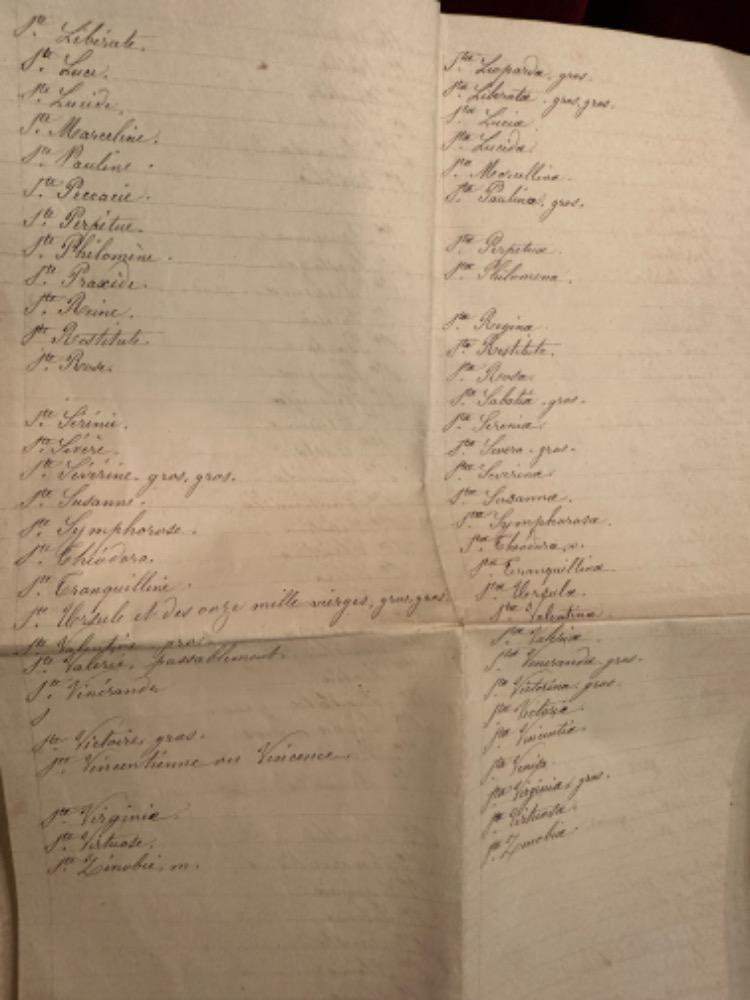 Ste. Libérate.
Ste. Luce.
Ste. Lucide.
Ste. Marceline.
Ste. Pauline.
Ste. Peccacie.
Ste. Perpétue.
Ste. Philomène.
Ste. Praxède.
Ste. Reine.
Ste. Restitute.
Ste. Rose.
Ste. Sérénie.
Ste. Sévère.
Ste. Séverine. gros, gros.
Ste. Susanne.
Ste. Symphorose.
Ste. Théodora.
Ste. Tranquilline.
Ste. Ursule et des onze mille vierges, gros, gros.
Ste. Valentine
Ste. Valerie, passablement.
Ste. Vénérande
S
Ste. Victoire, gros.
Ste. Vincentienne ou Vincence.
Ste. Virginie.
Ste. Virtuose.
Ste. Zénobie, m.
Stæ. Leopardæ, gros.
Stæ. Liberatæ. gros, gros.
Stæ. Luciæ
Stæ. Lucidæ
Stæ. Marcellinæ.
Stæ. Paulinæ, gros.
Stæ. Perpetuæ.
Stæ. Philomenæ.
Stæ. Reginæ
Stæ. Restitute.
Stæ. Rosæ
Stæ. Sabatiæ. gros.
Stæ. Sereniæ.
Stæ. Severæ. gros.
Stæ. Severinæ.
Stæ. Susannæ.
Stæ. Symphorosæ.
Stæ. Théodoræ
Stæ. Tranquillinæ
Stæ. Ursulæ.
Stæ. Valentinæ
Stæ. Valeriæ
Stæ. Venerandæ. gros.
Stæ. Victorinæ. gros.
Stæ. Victoriæ.
Stæ. Vincentiæ.
Stæ.
Stæ. Virginiæ, gros.
Stæ. Virtuosæ.
Stæ. Zenobiæ.